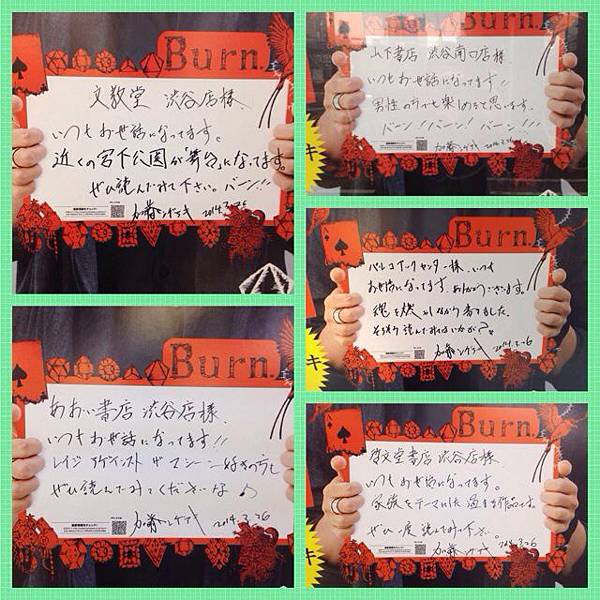 Burn.
文教堂 渋谷店様
いつもお世話になってます。
近くの宮下公園が「舞台」になってます。
ぜひ読んでみて下さい。バーン!!
加藤シゲアキ 2014.3.26
Burn.
あおい書店 渋谷店様
いつもお世話になってます!!
レイジ アゲインスト ザ マシーン好きの方も
ぜひ読んでみてくださいな♪
加藤シゲアキ 2014.3.26
Burn.
山下書店 渋谷南口店様
いつもお世話になってます!!
男性の方でも楽しめると思います。
バーン!! バーン! バーン!!!
加藤シゲアキ 2014.3.26
Burn.
パルコブックセンター様、いつも
お世話になってます。ありがとうございます。
魂を燃やしながら書きました。
読んでみればいかが?
加藤シゲアキ 2014.3.26
キ
Burn.
啓文堂書店 渋谷店様
いつもお世話になってます。
家族をテーマにした 作品です。
ぜひ一度読んでみて下さい。
加藤シゲアキ 2014.3.26
キ